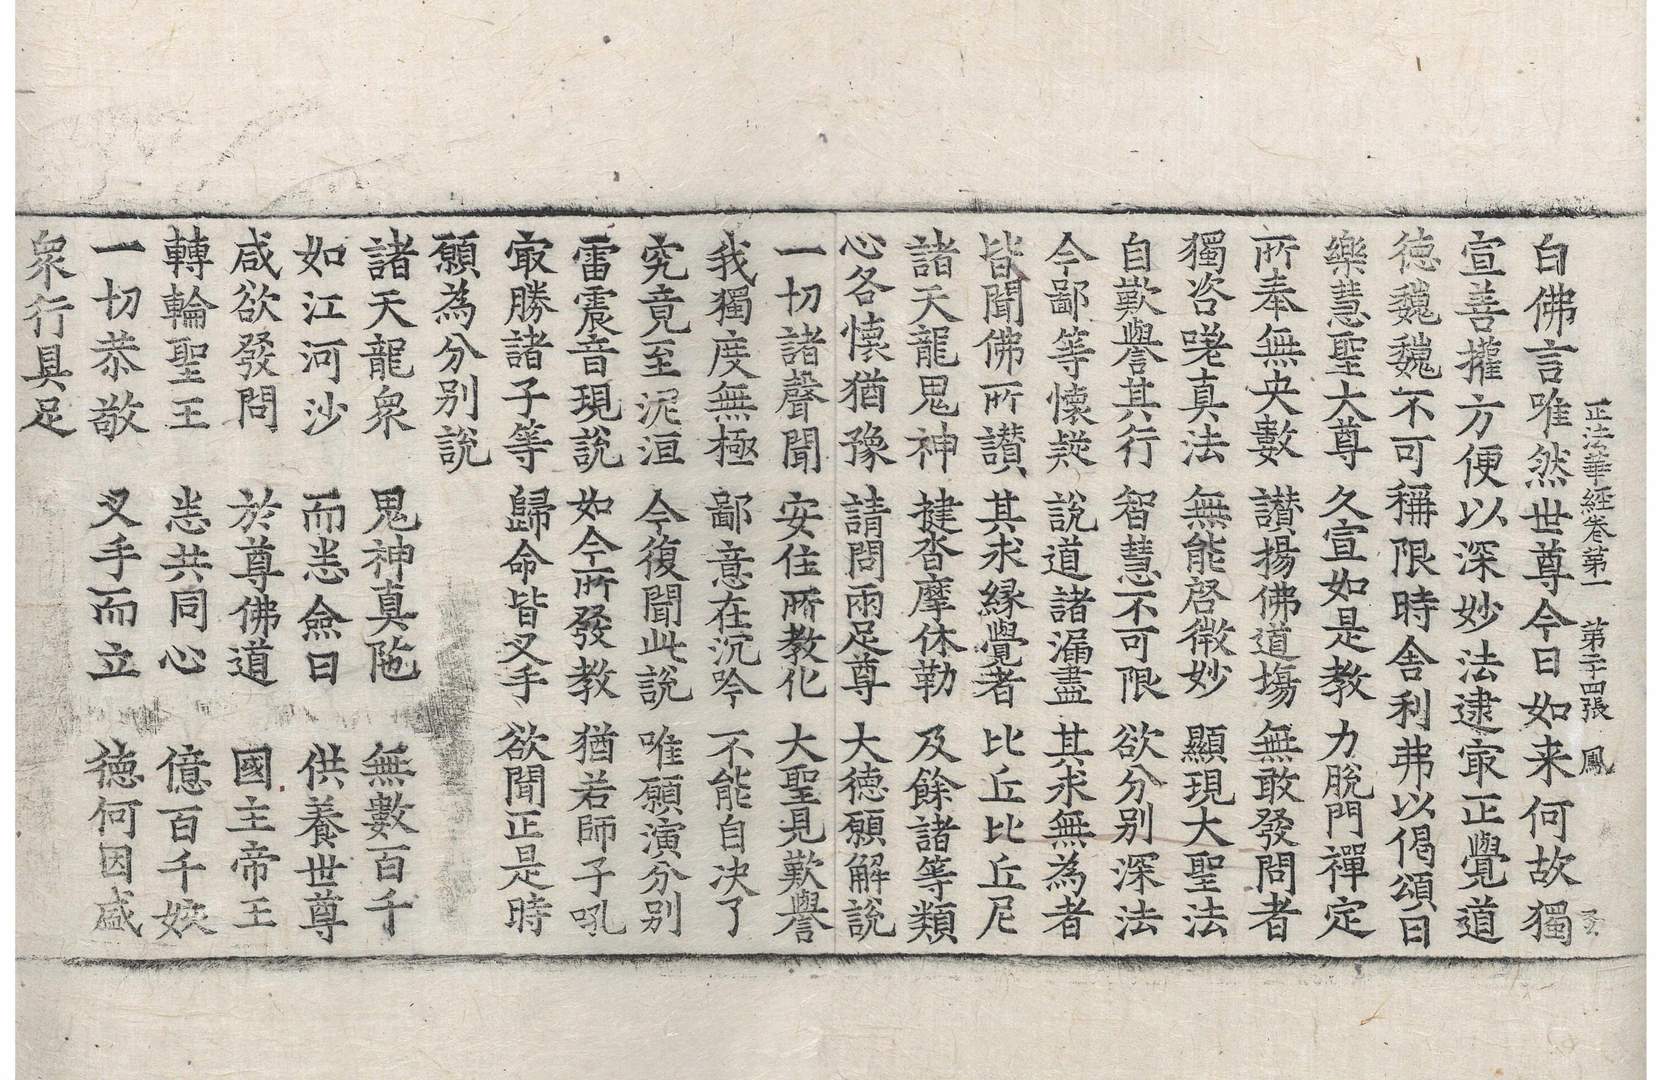 正法華經卷第一　第二十四張　鳳
白佛言唯然世尊今日如来何故獨
宣善攉方便以深妙法逮㝡正覺道
德魏魏不可稱限時舍利弗以偈頌曰
樂慧聖大尊　久宣如是教　力脫門禪定
所奉無央數　讃揚佛道塲　無敢發問者
獨咨嗟真法　無能啓微妙　顯現大聖法
自歎譽其行　智慧不可限　欲分別深法
今鄙等懷疑　說道諸漏盡　其求無為者
皆聞佛所讃　其求縁覺者　比丘比丘尼
諸天龍鬼神　揵沓摩休勒　及餘諸等類
心各懷猶豫　請問兩足尊　大德願解說
一切諸聲聞　安住所教化　大聖見歎譽
我獨度無極　鄙意在沉吟　不能自决了
究竟至泥洹　今復聞此說　唯願演分別
雷震音現說　如今所發教　猶若師子吼
㝡勝諸子等　歸命皆叉手　欲聞正是時
願為分別說
諸天龍衆　鬼神真陁　無數百千
如江河沙　而悉僉曰　供養世尊
咸欲發問　於尊佛道　國主帝王
轉輪聖王　悉共同心　億百千姟
一切恭敬　叉手而立　德何因盛
衆行具足